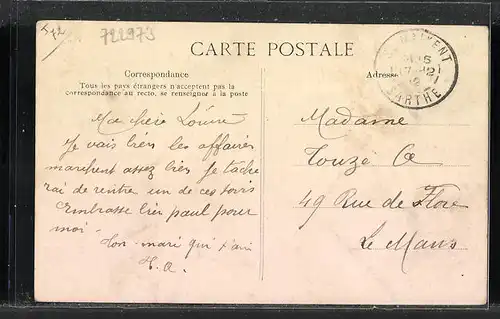 722973
CARTE POSTALE
Correspondance
Tous les pays étrangers n'acceptent pas la
correspondance au recto, se renseigner à la poste
Ma chère Louise
Je vais bien les affaires
marchent assez bien Je tache
rai de rentre un de ces soirs
Embrasse bien paul pour
moi.
Ton mari qui t'aime
T. A.
Adresse
SARTHE
Madame
Touzé A
49 Rue de Flore
Le Mans